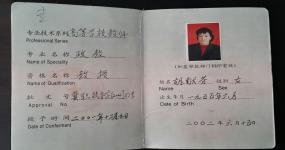 专业技术系列 高等学校教师
Professional Series
专业名称 政教
Name of Speciality
资格名称 教授
Name of Qualification
批文号
Approval No
授予时间 二〇〇一年十二月
Date of Conferment
(加盖审批部门钢印有效)
姓名 性别 女
出生年月 一九五五年六月
Date of Birth
二〇〇二年六月十五日